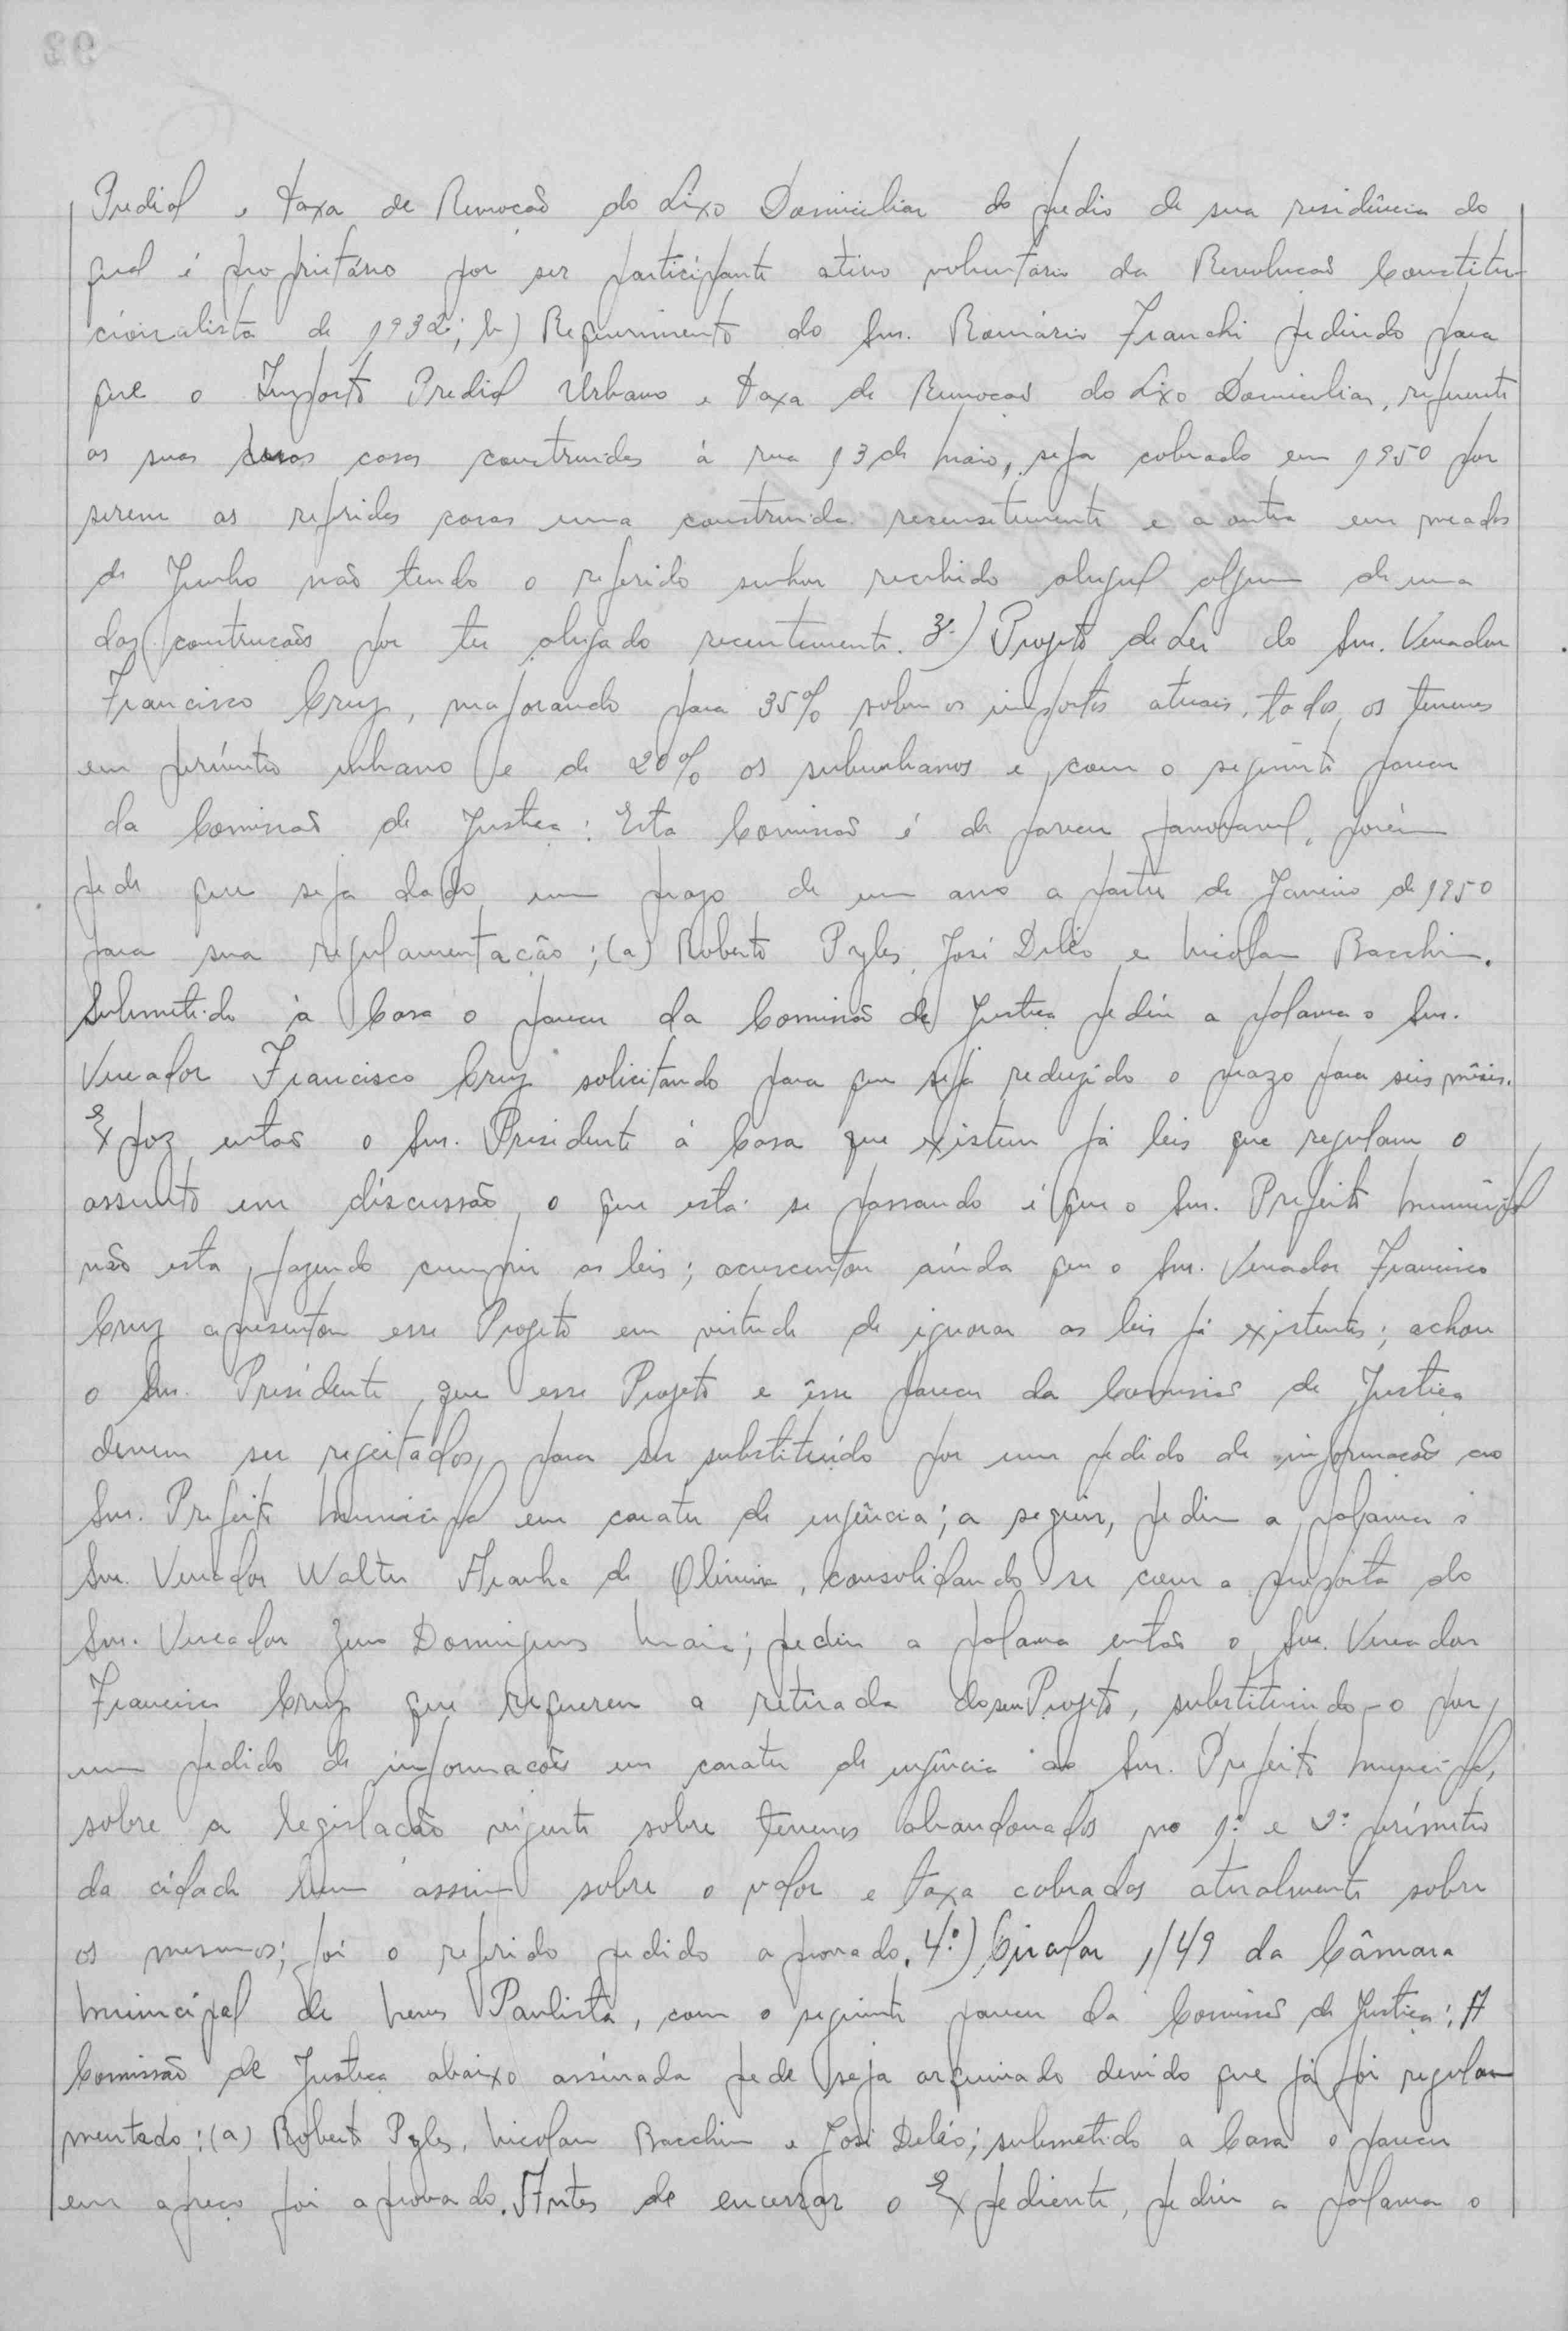 Predial e taxa de Remoção do Lixo Domiciliar do predio de sua residência do
qual é proprietário por ser participante ativo voluntário da Revolucão Constitu-
cionalista de 1932; b) Requerimento do Snr. Romário Franchi pedindo para
que o Imposto Predial Urbano e taxa de Remocão do Lixo Domiciliar, referente
as suas casas construidas á rua 13 de Maio, seja cobrado em 1950 por
serem as referidas casas uma construida recensetemente e a outra em meados
de Junho não tendo o referido senhor recebido aluguel algum de uma
das contrucões por ter alugado recentemente. 3º) Projeto de Lei do Snr. Vereador
Francisco Cruz, majorando para 35% sobre os impostos atuais, todos os terrenos
em perímetro urbano e de 20% os suburbanos e, com o seguinte parecer
da Comissão de Justiça: Esta Comissão é de parecer favoravel, porém
pede que seja dado um prazo de um ano a partir de Janeiro de 1950
para sua regulamentação; (a) Roberto Pyles, José Deléo e Nicolau Bacchim.
Submetido à Casa o parecer da Comissão de Justiça pediu a palavra o Snr.
Vereador Francisco Cruz solicitando para que seja reduzido o prazo para seis mêses.
Expoz então o Snr. Presidente á Casa que existem já leis que regulam o
assunto em discussão, o que está se passando é que o Snr. Prefeito Municipal
não esta fazendo cumprir as leis; acrescentou ainda que o Snr. Vereador Francisco
Cruz apresentou esse Projeto em virtude de ignorar as leis já existentes; achou
o Snr. Presidente, que esse Projeto e êsse parecer da Comissão de Justiça
devem ser rejeitados, para ser substituído por um pedido de informacão ao
Snr. Prefeito Municipal em carater de urgência; a seguir, pediu a palavra o
Snr. Vereador Walter Aranha de Oliveira, consolidando se com a proposta do
Snr. Vereador Zeno Domingues Maia; pediu a palavra então o Snr. Vereador
Francisco Cruz que requereu a retirada do seu Projeto, substituindo-o por
um pedido de informacões em carater de urgência ao Snr. Prefeito Municipal,
sobre a legislacão vigente sobre terrenos abandonados no 1º e 2º perímetro
da cidade bem assim sobre o valor e taxa cobrados atualmente sobre
os mesmos; foi o referido pedido aprovado. 4º) Circular 1/49 da Câmara
Municipal de Neves Paulista, com o seguinte parecer da Comissão de Justiça: A
Comissão de Justiça abaixo assinada pede seja arquivado devido que já foi regulam
mentado: (a) Robert Pyles, Nicolau Bacchim e José Deléo; submetido a Casa o parecer
em apreço foi aprovado. Antes de encerrar o Expediente, pediu a palavra o